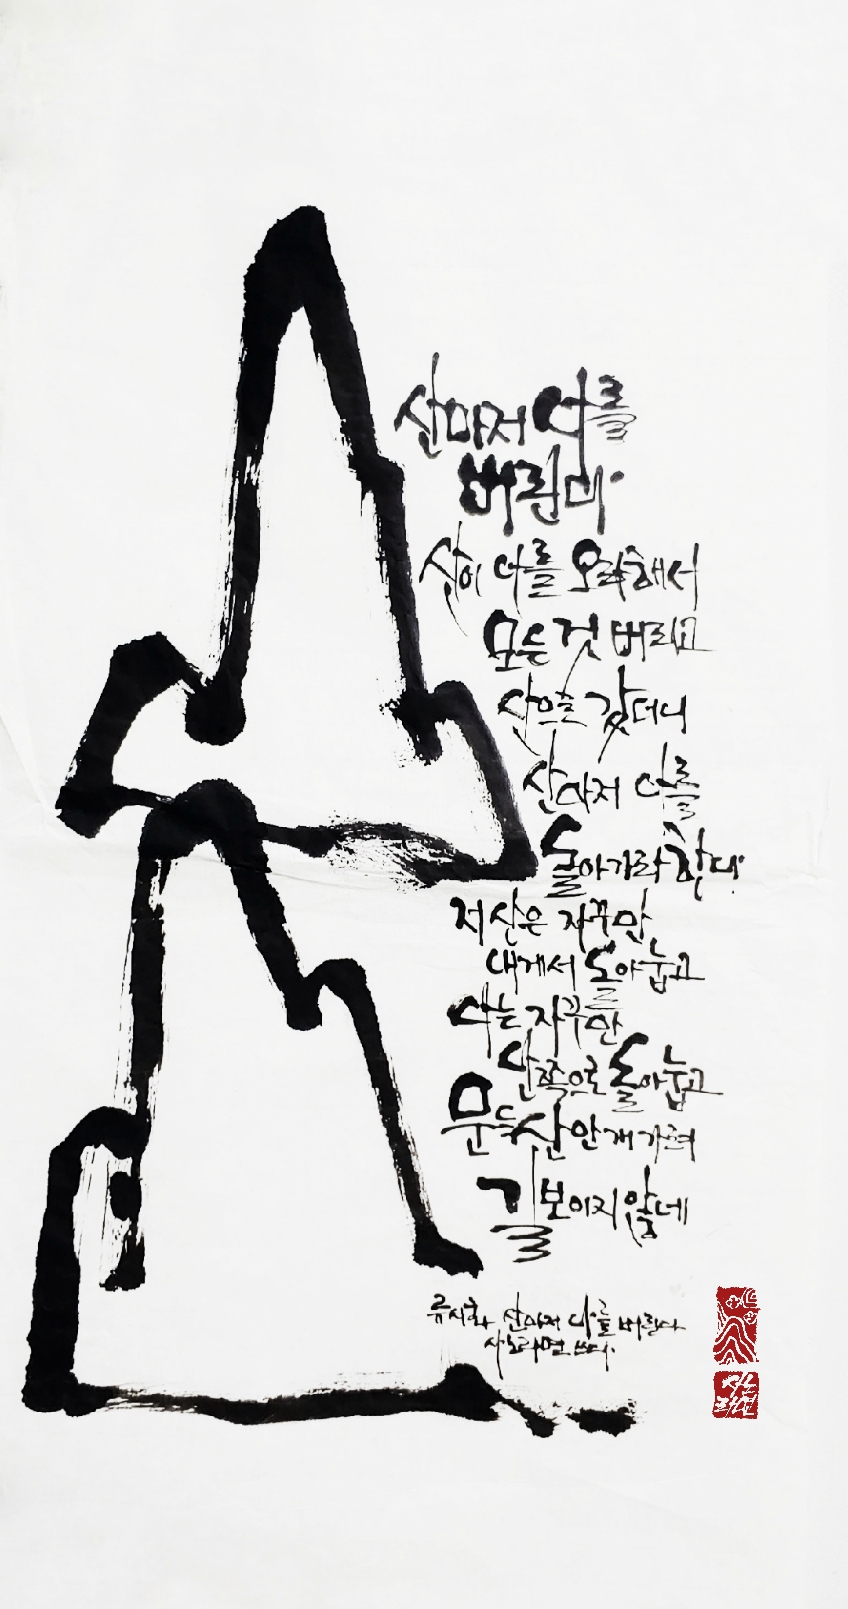 산마저 나를
버린다
산이 나를 오라해서
모든 것 버리고
산으로 갔더니
산마저 나를
돌아가라 한다
저 산은 자꾸만
내게서 돌아눕고
나는 자꾸만
산쪽으로 돌아눕고
문득 산안개 가려
길 보이지 않네
류시화 산마저 나를 버린다
쓰다.